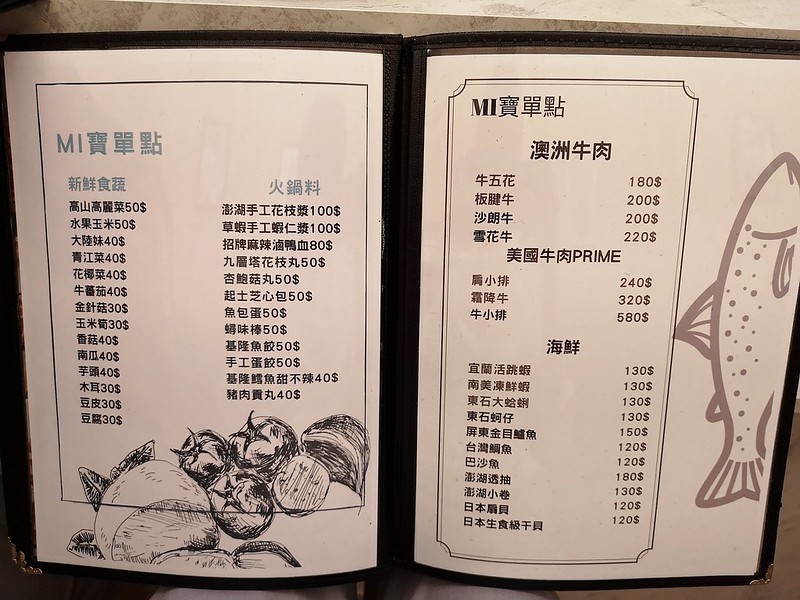 MI寶單點
新鮮食蔬
高山高麗菜50$
水果玉米50$
大陸妹40$
青江菜40$
花椰菜40$
牛蕃茄40$
金針菇30$
玉米筍30$
香菇40$
南瓜40$
芋頭40$
木耳30$
豆皮30$
豆腐30$
火鍋料
澎湖手工花枝漿100$
草蝦手工蝦仁漿100$
招牌麻辣滷鴨血80$
九層塔花枝丸50$
杏鮑菇丸50$
起士芝心包50$
魚包蛋50$
蟳味棒50$
基隆魚餃50$
手工蛋餃50$
基隆鱈魚甜不辣40$
豬肉貢丸40$
MI寶單點
澳洲牛肉
牛五花 180$
板腱牛 200$
沙朗牛 200$
雪花牛 220$
美國牛肉PRIME
肩小排 240$
霜降牛 320$
牛小排 580$
海鮮
宜蘭活跳蝦 130$
南美凍鮮蝦 130$
東石大蛤蜊 130$
東石蚵仔 130$
屏東金目鱸魚 150$
台灣鯛魚 120$
巴沙魚 120$
澎湖透抽 180$
澎湖小卷 130$
日本扇貝 120$
日本生食級干貝 120$